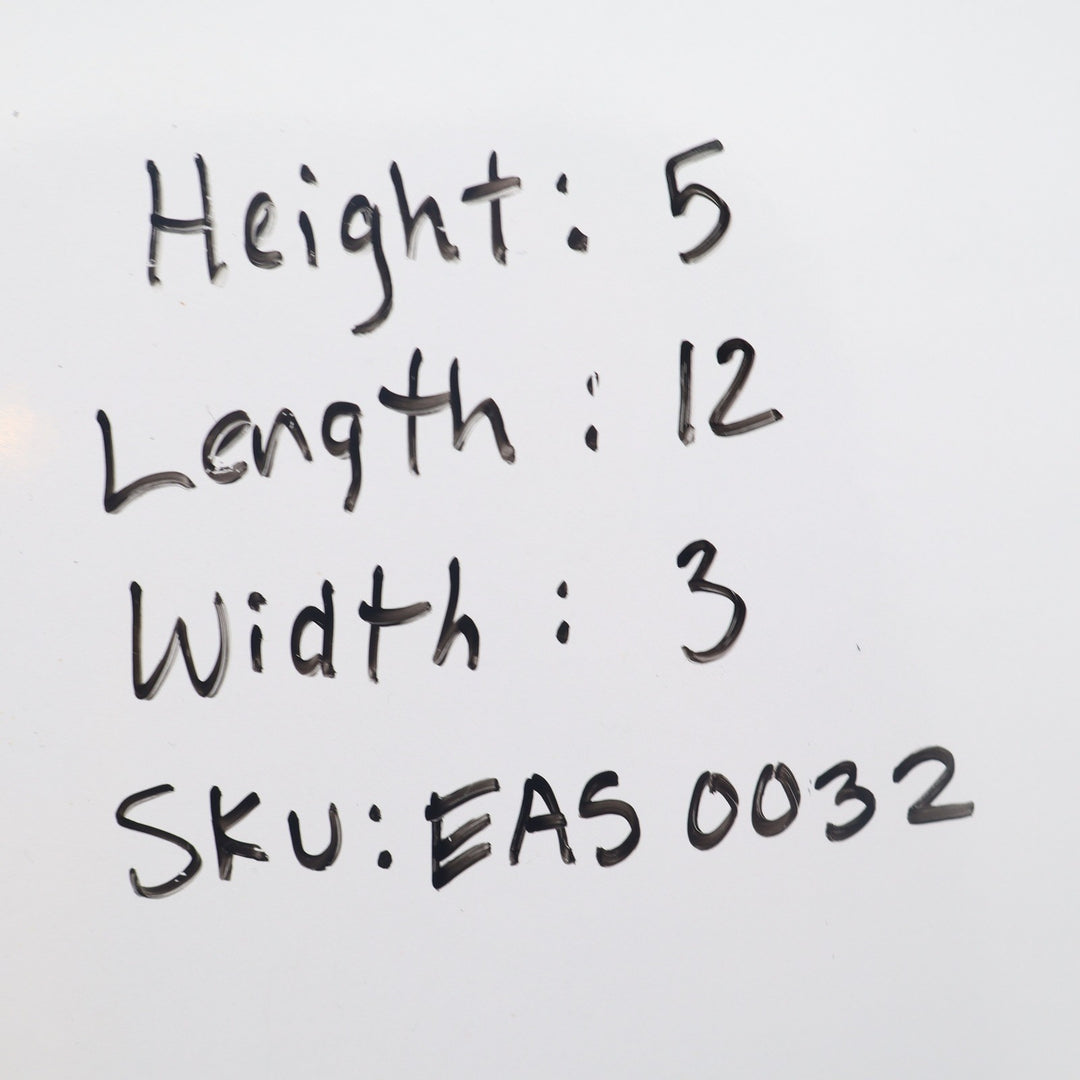 Height: 5
Length: 12
Width: 3
SKU: EAS 0032